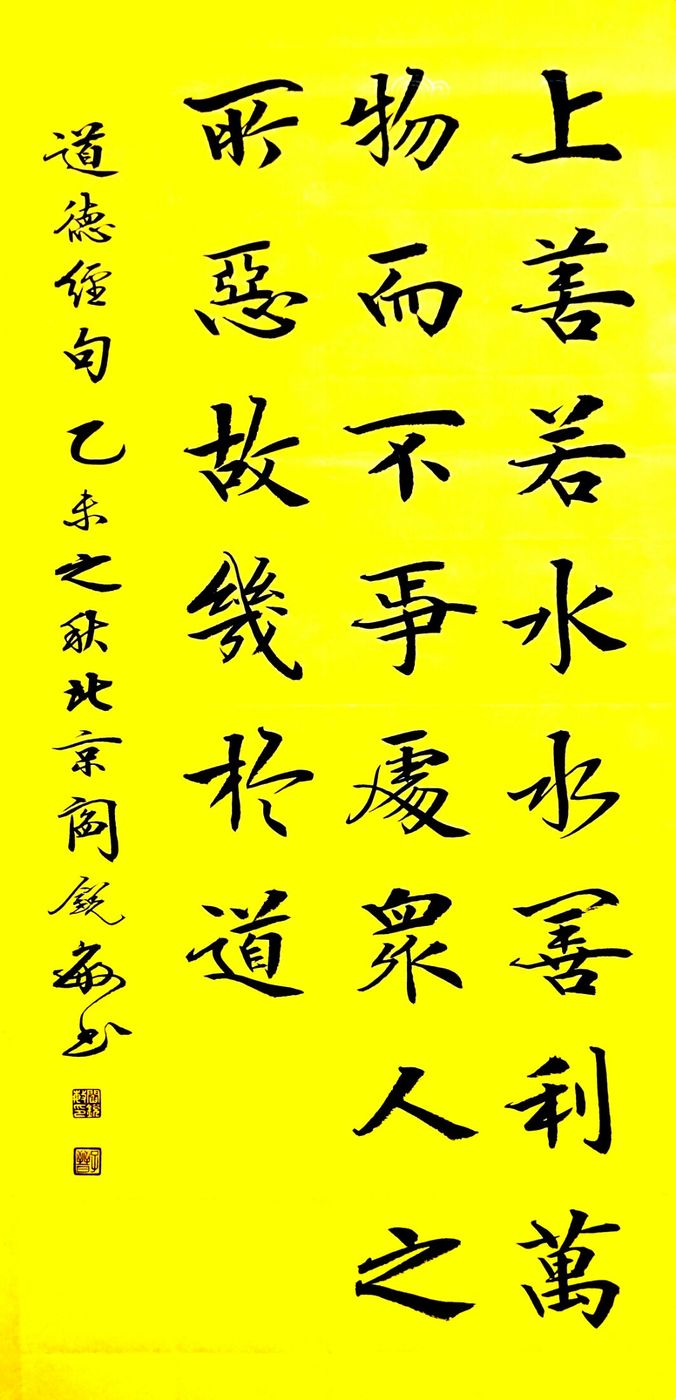 上善若水水善利萬
物而不爭處眾人之
所惡故幾於道
道德經句乙未之秋北京閻銳敏书